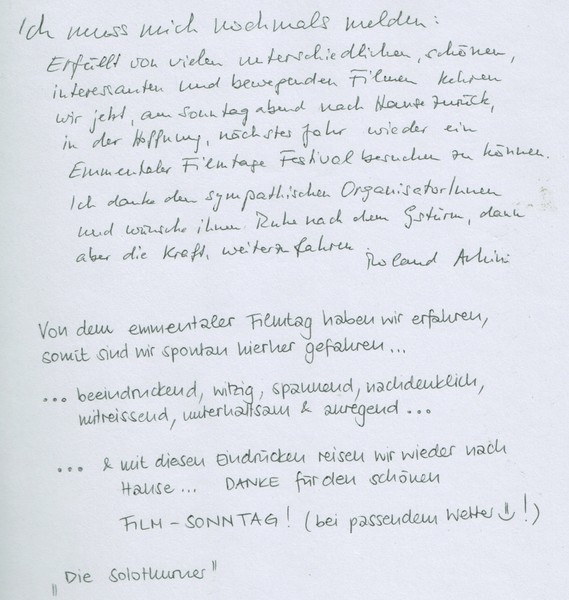 Ich muss mich nochmals melden:
Erfüllt von vielen unterschiedlichen, schönen,
interessanten und bewegenden Filmen kehren
wir jetzt, am Sonntag abend nach Hause zurück,
in der Hoffnung, nächstes Jahr wieder ein
Emmentaler Filmtage Festival besuchen zu können.
Ich danke den sympathischen OrganisatorInnen
und wünsche ihnen Ruhe nach dem Gstürm, dann
aber die Kraft, weiterzufahren. Roland
Von dem emmentaler Filmtag haben wir erfahren,
somit sind wir spontan hierher gefahren...
... beeindruckend, witzig, spannend, nachdenklich,
mitreissend, unterhaltsam & anregend...
... & mit diesen Eindrücken reisen wir wieder nach
Hause... DANKE für den schönen
FILM-SONNTAG! (bei passendem Wetter !)
"Die Solothurner"